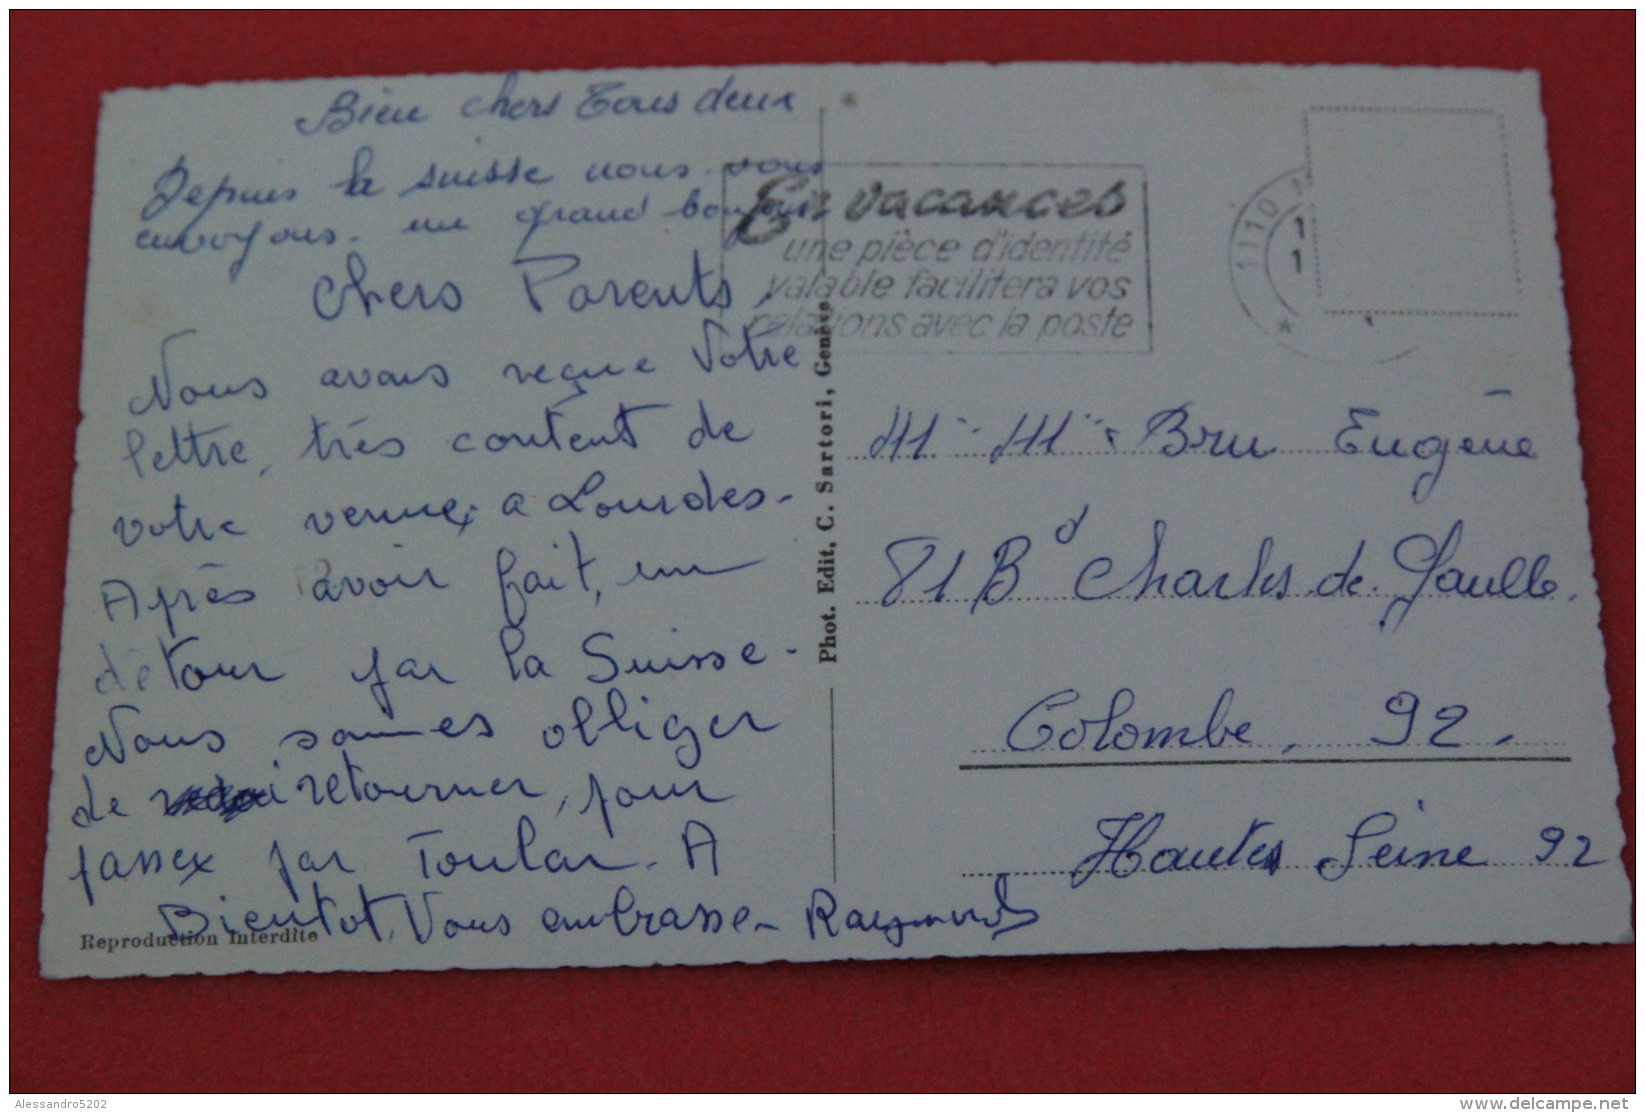 Bien chers Tous deux
Depuis la suisse nous vous
envoyons. un grand bonjour
Chers Parents,
Nous avons reçue Votre
lettre, très content de
votre venue a Lourdes.
Après avoir fait, un
détour par la Suisse.
Nous sommes obliger
de retourner, pour
passer par Toulon. A
Bientot, Vous embrasse. Raymond
Reproduction Interdite
Phot. Edit, C. Sartori, Genève
En vacances
une pièce d'identité
valable facilitera vos
relations avec la poste
1110
1
1
Mr. Mme Bru Eugène
81 Bd Charles de Gaulle.
Colombe, 92.
Hautes Seine 92
Alessandro5202
delcampe.net